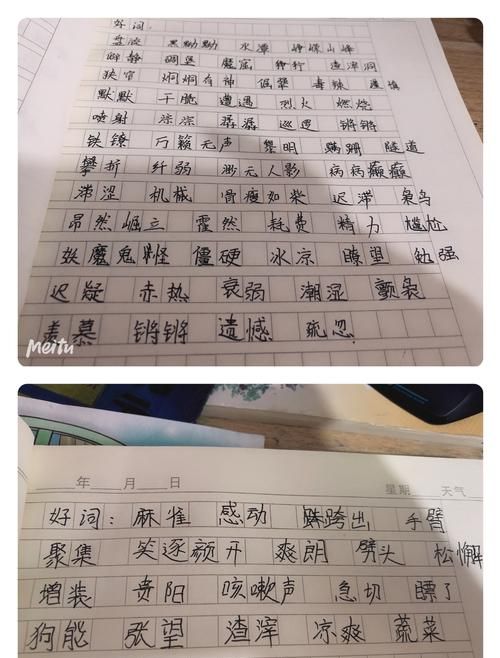 好词:
黑黝黝 水潭 峥嵘山峰
僻静 碉堡 魔窟 渣滓洞
狭窄 炯炯有神 倔犟 毒辣 谨慎
默默 干脆 遭遇 烈火 燃烧
喷射 淙淙 潺潺 巡逻 锵锵
铁镣 万籁无声 黎明 蹒跚 隧道
攀折 纤弱 渺无人影 疯疯癫癫
滞涩 机械 骨瘦如柴 迟滞 枭鸟
昂然 崛立 霍然 耗费 精力 尴尬
妖魔鬼怪 僵硬 冰凉 瞭望 勉强
迟疑 赤热 衰弱 潮湿 颤袅
羡慕 锵锵 遗憾 疏忽
Meitu
年 月 日 星期 天气
好词:麻雀 感动 跨出 手臂
聚集 笑逐颜开 爽朗 劈头 松懈
增装 贵阳 咳嗽声 急切 瞟了
狗熊 张望 渣滓 凉爽 蔬菜